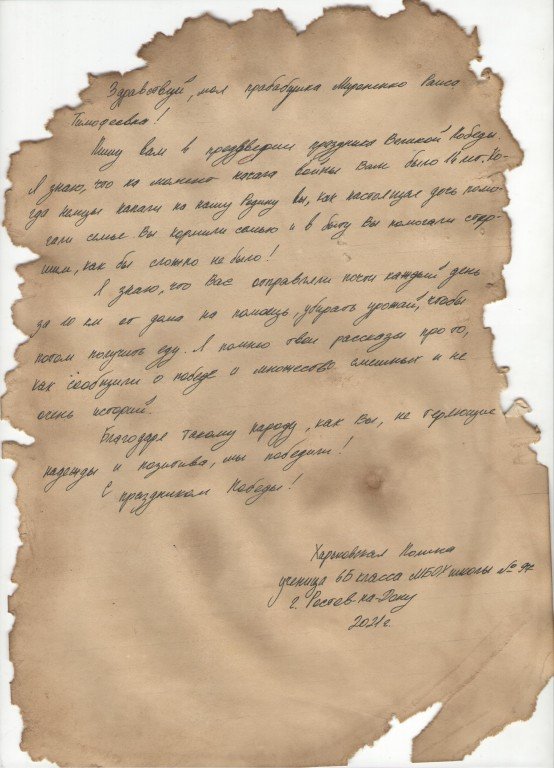 Здравствуй, моя прабабушка Мироненко Раиса
Тимофеевна!
Пишу вам в преддверии праздника Великой Победы.
Я знаю, что на момент начала войны Вам было 16 лет. Ко-
гда немцы напали на нашу Родину Вы, как настоящая дочь помо-
гали семье. Вы кормили семью и в быту Вы помогали стар-
шим, как бы сложно не было!
Я знаю, что Вас отправляли почти каждый день
за 10 км от дома на помощь, убирать урожай, чтобы
потом получить еду. Я помню твои рассказы про то,
как сообщили о победе и множество смешных и не
очень историй.
Благодаря такому народу, как Вы, не теряющие
надежды и позитива, мы победили!
С праздником Победы!
Харьковская Полина
ученица 6Б класса МБОУ школы № 97
г. Ростов-на-Дону
2021 г.